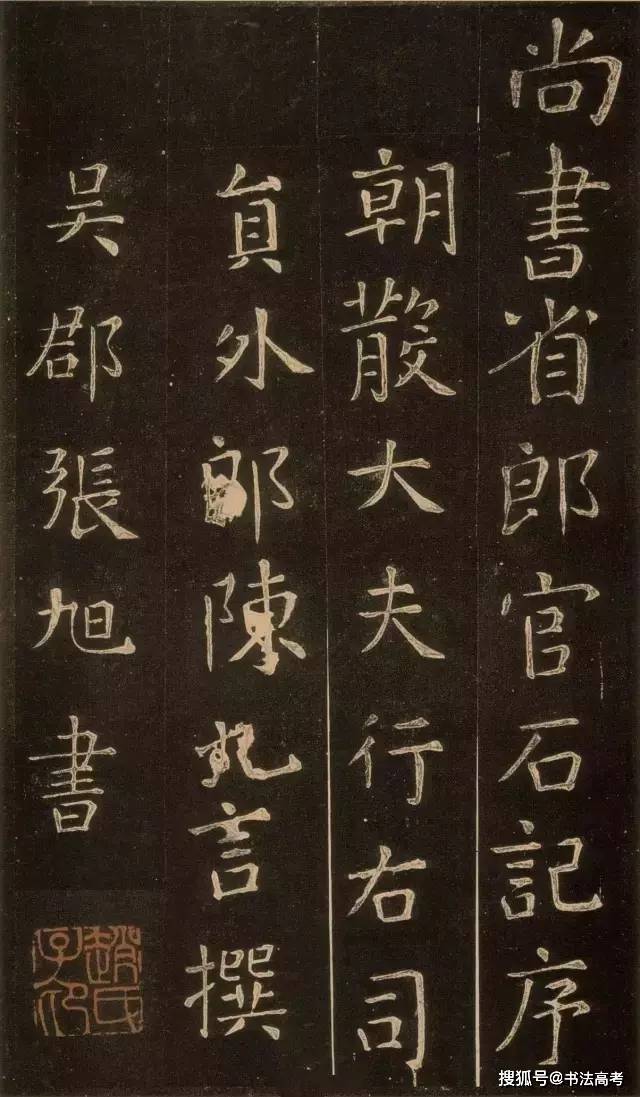 尚書省郎官石記序
朝散大夫行右司
員外郎陳九言撰
吳郡張旭書
趙氏子印
搜狐号@书法高考